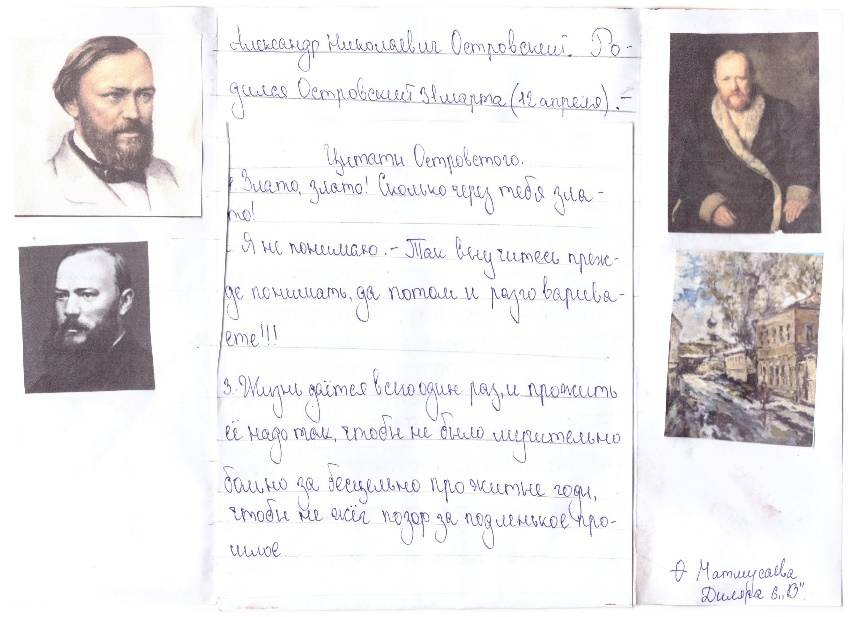 Александр Николаевич Островский. Ро-
дился Островский 31 марта (12 апреля). -
Цитати Островстого.
Злато, злато! Сколько через тебя зла-
то!
Я не понимаю. - Так выучитесь преж-
де понимать, да потом и разговарива-
ете!!!
3. Жизнь даётся всего один раз, и прожить
её надо так, чтобы не было мучительно
больно за бесцельно прожитые годы,
чтобы не жёг позор за подленькое про-
шлое.
Матмусаева
Диляра 8 „В".